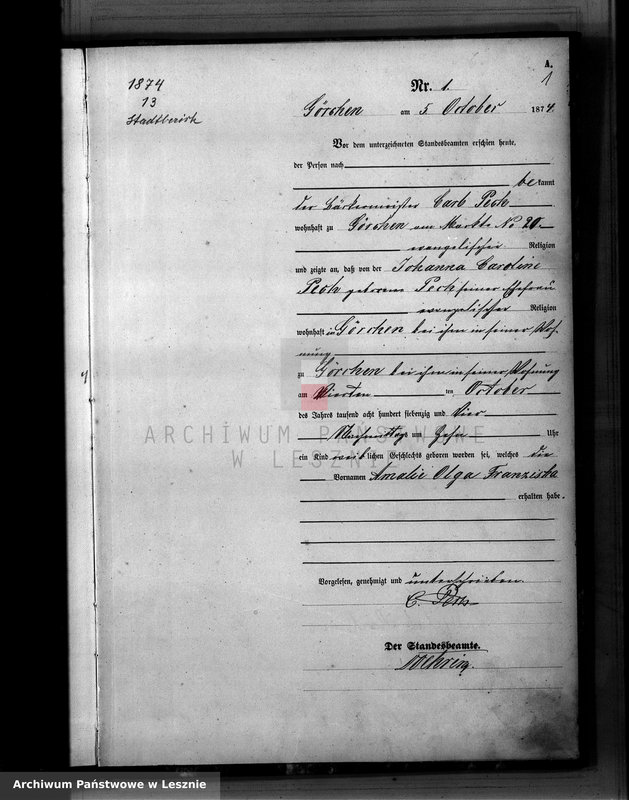 1874
13
Stadtbezirk
A.
1
Nr. 1.
Görchen am 5. October 1874.
Vor dem unterzeichneten Standesbeamten erschien heute,
der Person nach
bekannt
der Bäckermeister Carl Pech
wohnhaft zu Görchen am Markte No 20.
evangelischer Religion
und zeigte an, daß von der Johanna Caroline
Pech geborene Pech seiner Ehefrau
evangelischer Religion
wohnhaft in Görchen bei ihm in seiner Woh-
nung
zu Görchen bei ihm in seiner Wohnung
am Vierten ten October
des Jahres tausend acht hundert siebenzig und Vier
Nachmittags um Uhr
ein Kind weiblichen Geschlechts geboren worden sei, welches die
Vornamen Amalie Olga Franziska
erhalten habe.
Vorgelesen, genehmigt und unterschrieben.
C. Pech
Der Standesbeamte.
ARCHIWUM PAŃSTWOWE
W LESZNIE
Archiwum Państwowe w Lesznie